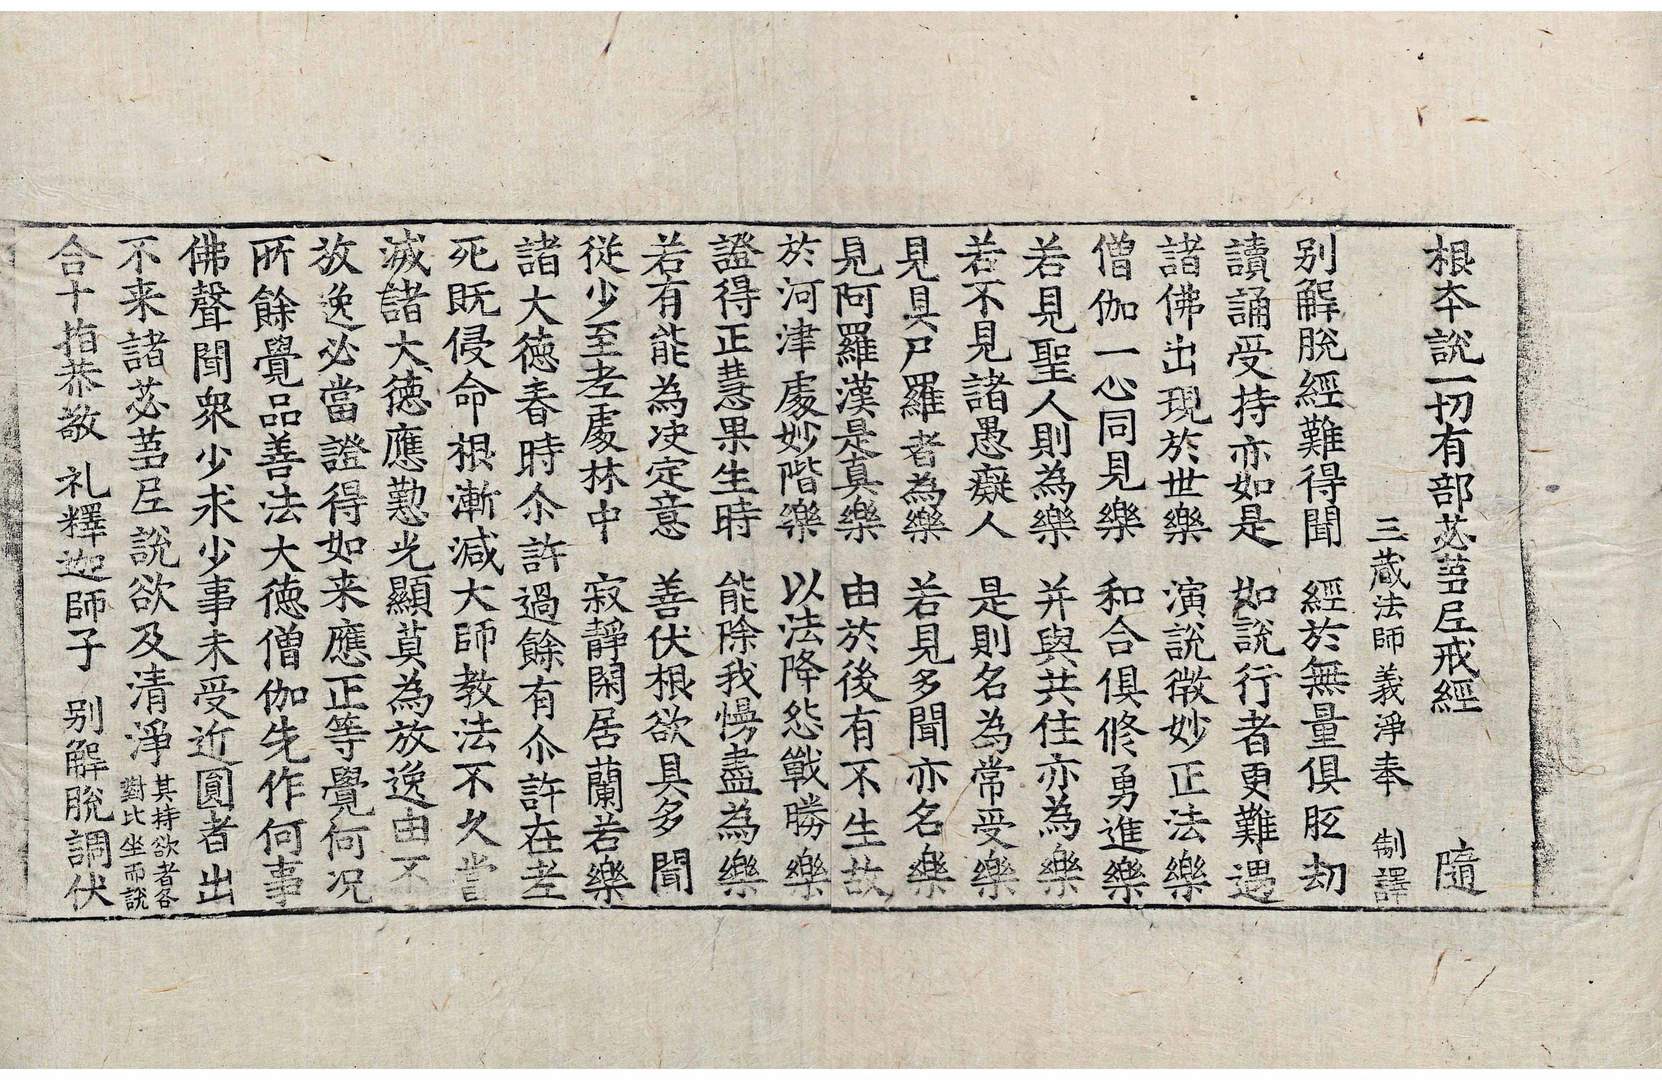 根夲說一切有部苾蒭尼戒經 隨
三蔵法師 義淨奉 制譯
别解脫經難得聞 經於無量俱胝劫
讀誦受持亦如是 如說行者更難遇
諸佛出現於世樂 演說微妙正法樂
僧伽一心同見樂 和合俱修勇進樂
若見聖人則為樂 并與共住亦為樂
若不見諸愚癡人 是則名為常受樂
見具尸羅者為樂 若見多聞亦名樂
見阿羅漢是真樂 由於後有不生故
於河津處妙階樂 以法降怨戰勝樂
證得正慧果生時 能除我慢盡為樂
若有能為决定意 善伏根欲具多聞
從少至老處林中 寂靜閑居蘭若樂
諸大德春時尒許過餘有尒許在老
死既侵命根漸減大師教法不久當
滅諸大德應勤光顯莫為放逸由不
放逸必當證得如来應正等覺何况
所餘覺品善法大德僧伽先作何事
佛聲聞衆少求少事未受近圓者出
不来諸苾蒭尼說欲及清淨其持欲者各對比坐而說
合十指恭敬 礼釋迦師子 别解脫調伏